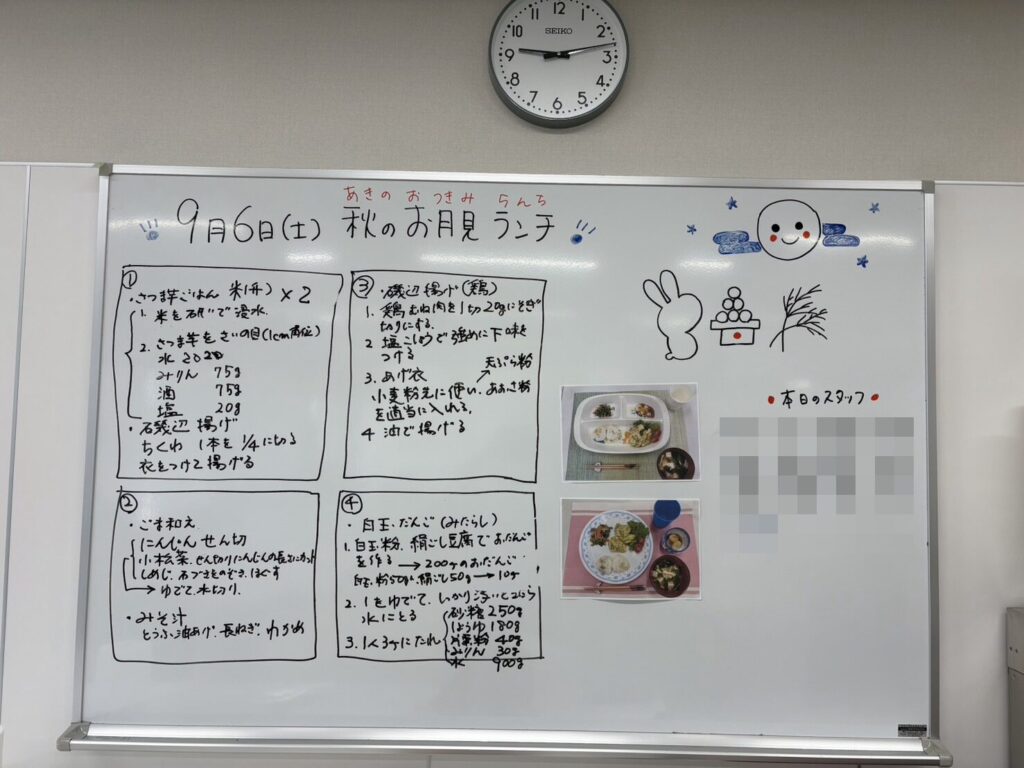 12
11
1
10
2
9
3
8
4
7
5
6
SEIKO
あきの おつきみ らんち
9月6日(土) 秋のお月見ランチ
①
・さつま芋ごはん 米(升) × 2
1. 米を研いで浸水
2. さつま芋をさいの目(1cm角位)
水 2020
みりん 75g
酒 75g
塩 20g
・磯辺揚げ
ちくわ 1本を 1/4に切る
衣をつけて揚げる
②
・ごま和え
にんじん せん切
小松菜、せん切りにんじんの長さにカット
しめじ、石づきをのぞき、ほぐす
→ ゆでて、水切り、
・みそ汁
とうふ、油あげ、長ねぎ、わかめ
③
・磯辺揚げ(鶏)
1. 鶏むね肉を1切20gにそぎ
切りにする。
2 塩こしょうで強めに下味を
つける
天ぷら粉
3. あげ衣
小麦粉える使い、あおさ粉
を適当に入れる。
4 油で揚げる
④
・白玉だんご(みたらし)
1. 白玉粉、絹ごし豆腐でおだんご
を作る → 200ヶのおだんご
白玉粉50g、絹ごし50g → 10ヶ
2. 1をゆでて、しっかり浮いてから
水にとる
3. 1人3ヶにたれ
砂糖 250g
しょうゆ 180g
片栗粉 40g
みりん 30g
水 900g
・本日のスタッフ・